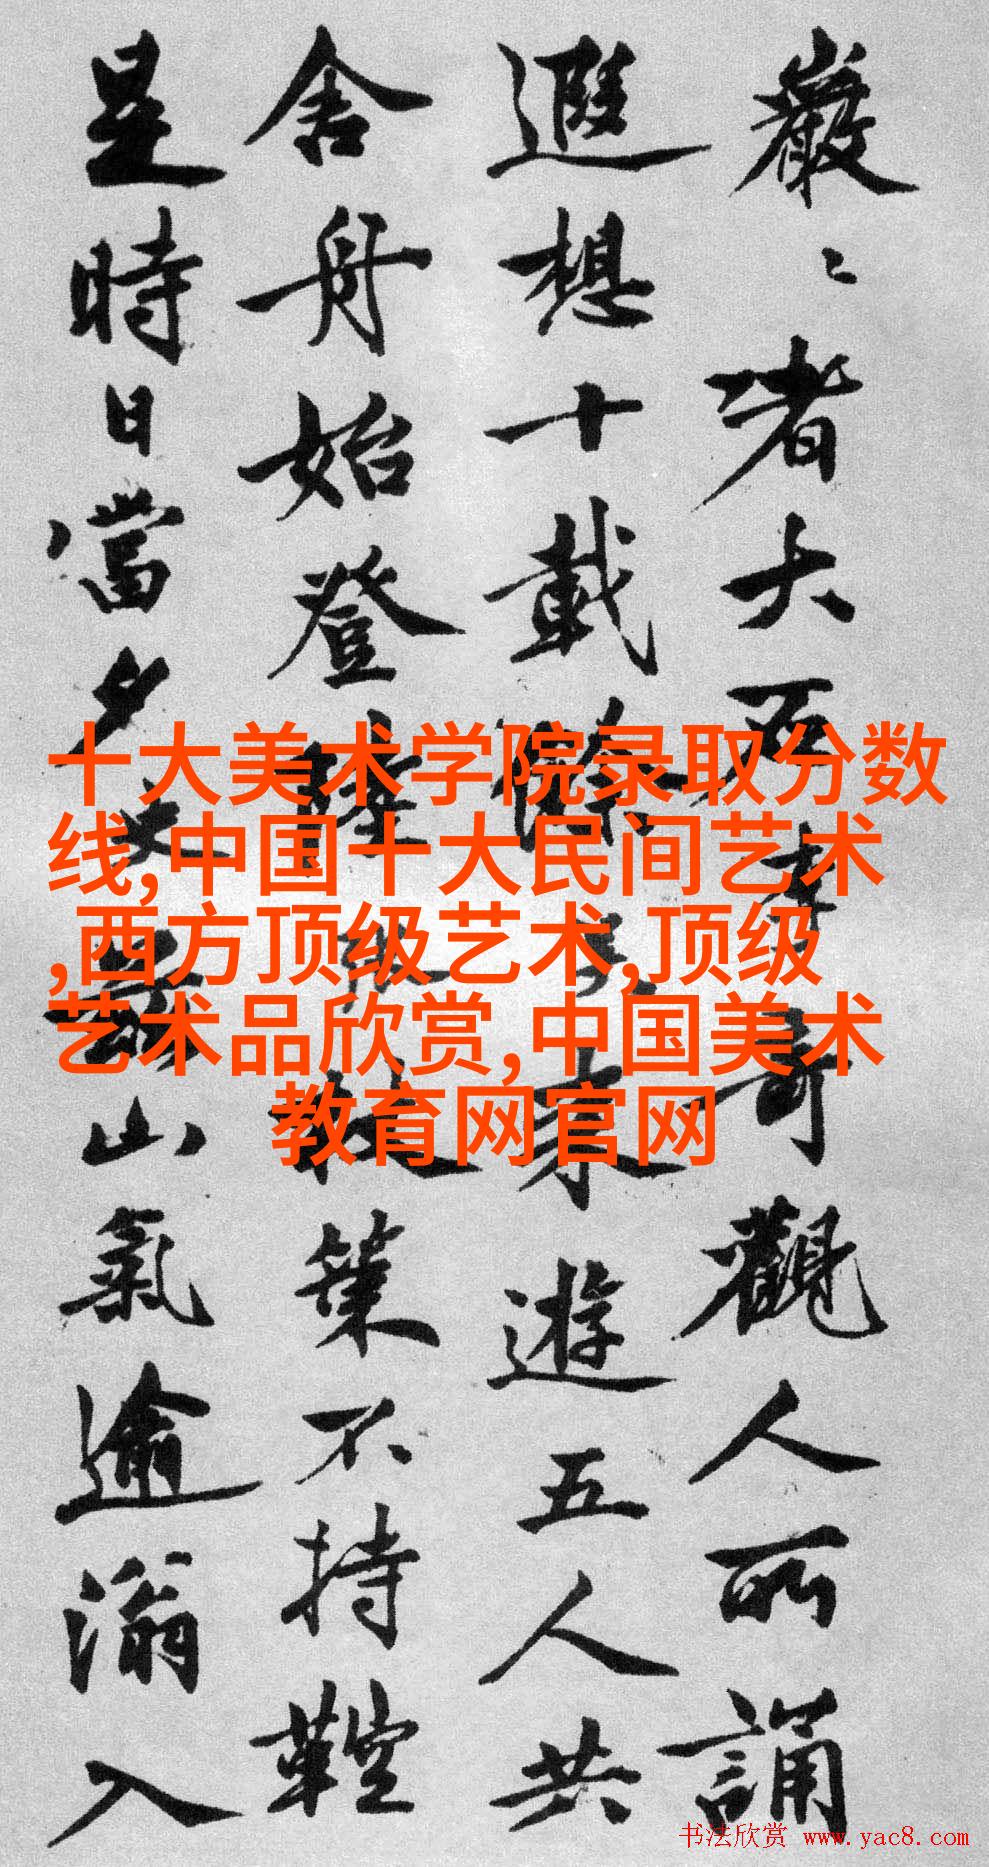 巖〻者大奇觀人所誦
遐想十載餘來遊五人共
舍舟始登陸杖策不持鞚
是時日當夕山氣逾滃入
十大美术学院录取分数
线,中国十大民间艺术
,西方顶级艺术,顶级
艺术品欣赏,中国美术
教育网官网
书法欣赏 www.yac8.com